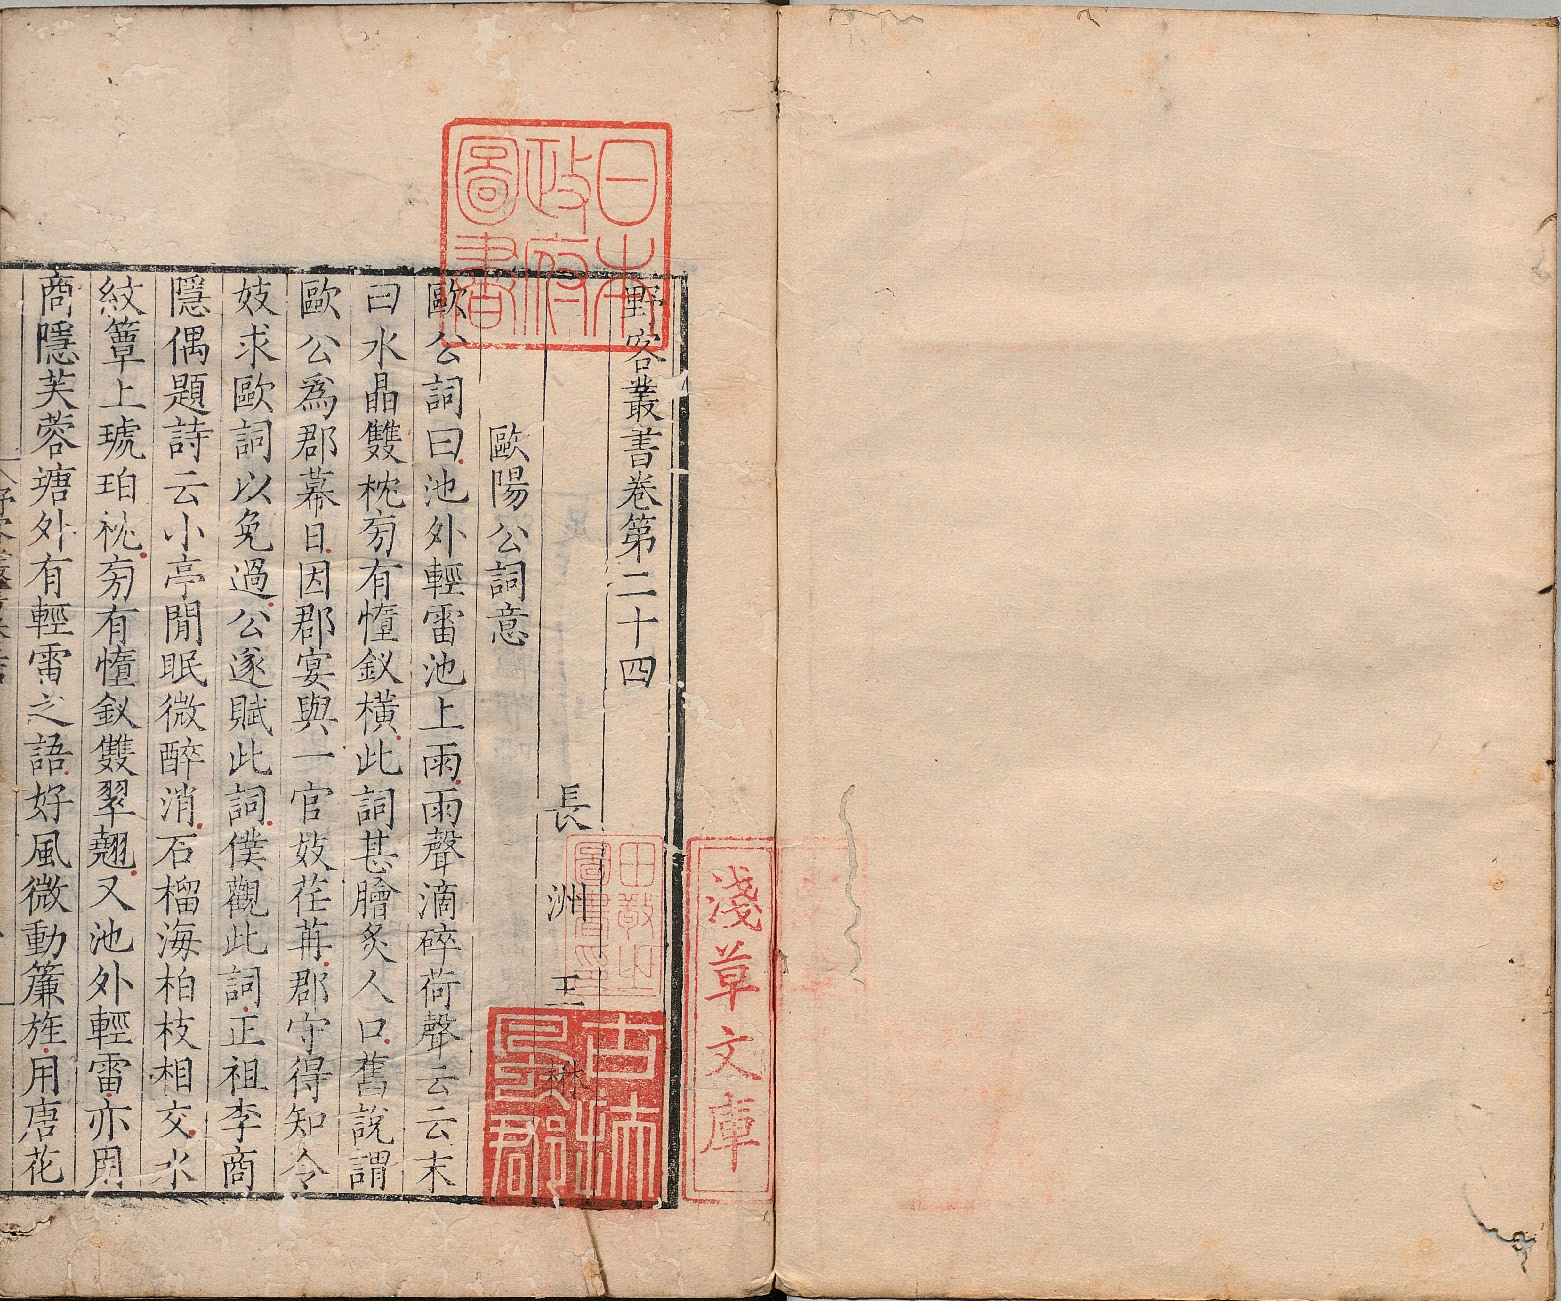 野客叢書卷第二十四
長洲王楙
歐陽公詞意
歐公詞曰池外輕雷池上雨雨聲滴碎荷聲云云末
曰水晶雙枕㫄有憻釵橫此詞甚膾炙人口舊說謂
歐公爲郡幕日因郡宴與一官妓荏苒郡守得知令
妓求歐詞以免過公遂賦此詞僕觀此詞正祖李商
隱偶題詩云小亭閒眠微醉消石榴海柏枝相交水
紋簟上琥珀枕㫄有憻釵雙翠翹又池外輕雷亦用
商隱芙蓉塘外有輕雷之語好風微動簾旌用唐花
日本政府圖書
淺草文庫